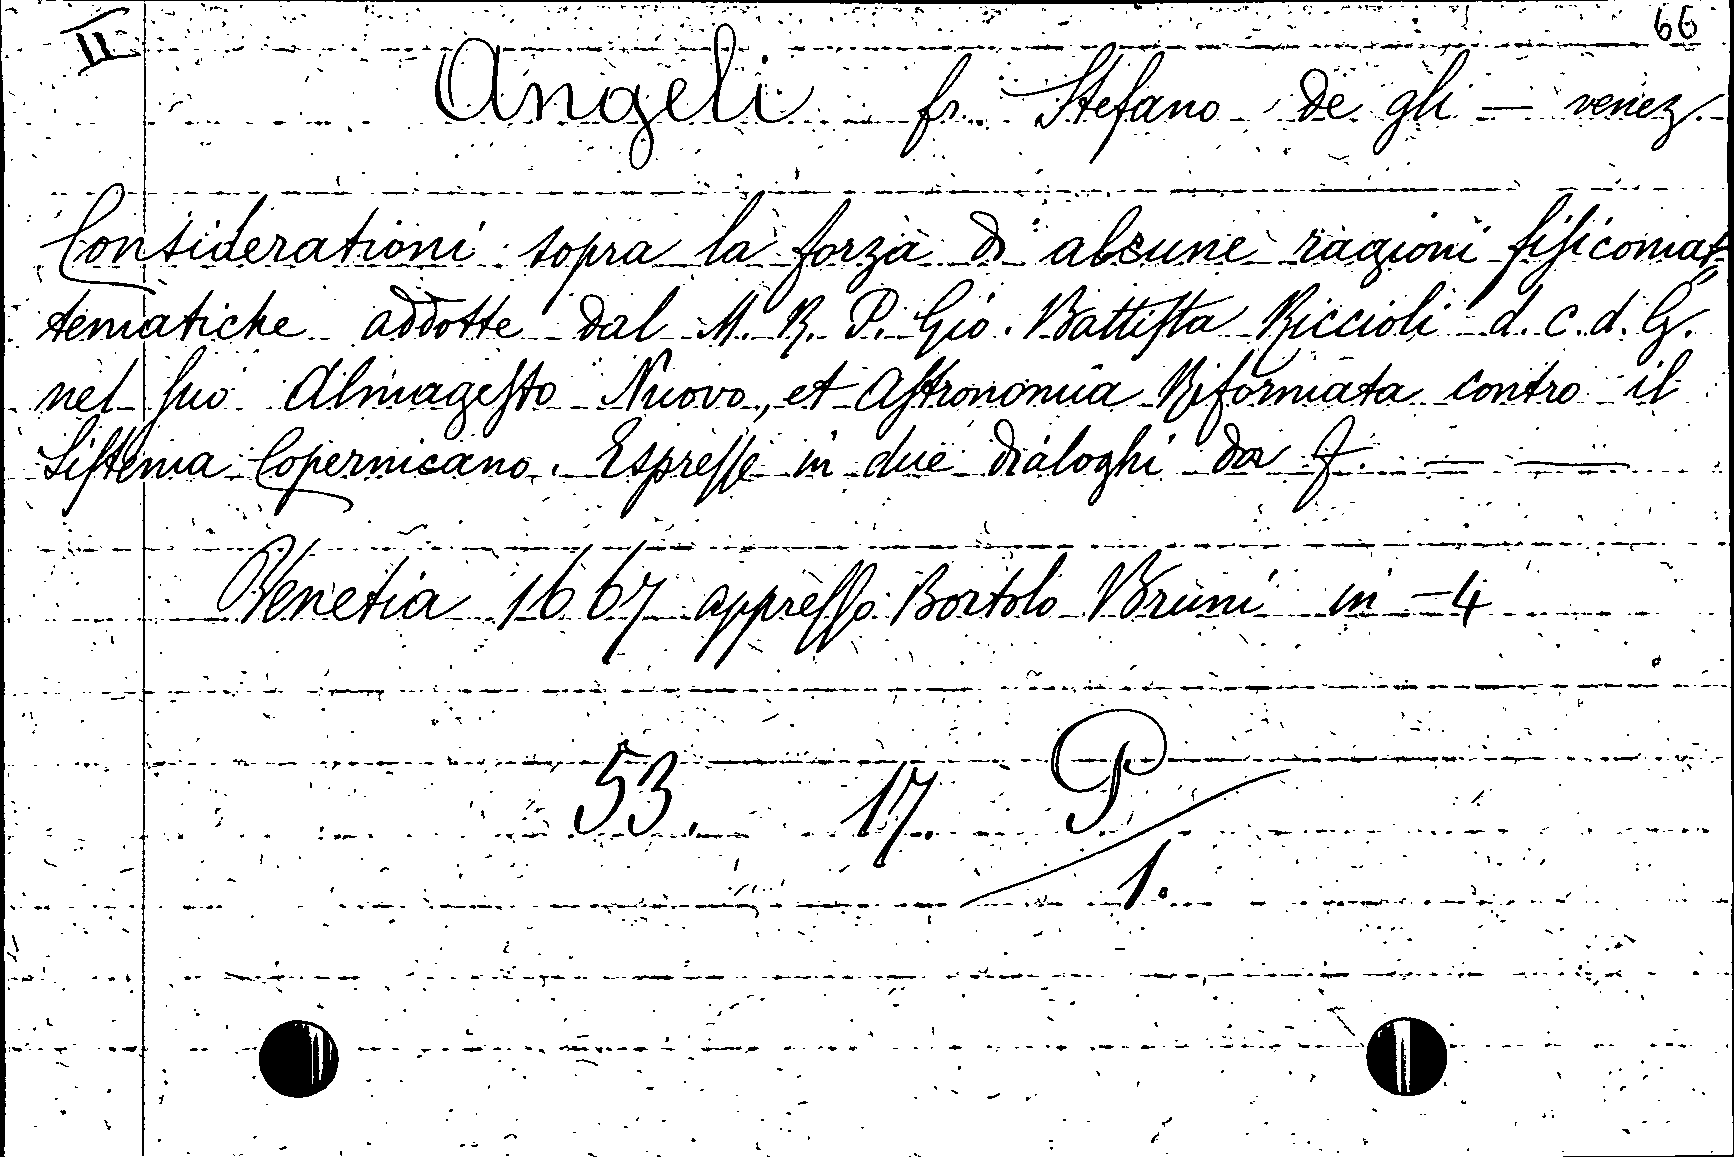 II 66
Angeli fr. Stefano de gli — venez.
Considerationi sopra la forza di alcune ragioni fiſicomat-
tematiche addotte dal M. R. P. Gio. Battiſta Riccioli d. c. d. G.
nel ſuo Almageſto Nuovo, et Aſtronomia Riformata contro il
Siſtema Copernicano. Espreſſe in due dialoghi da f. — —
Venetia 1667 appreſſo Bortolo Bruni in -4
53. 17. P
1.